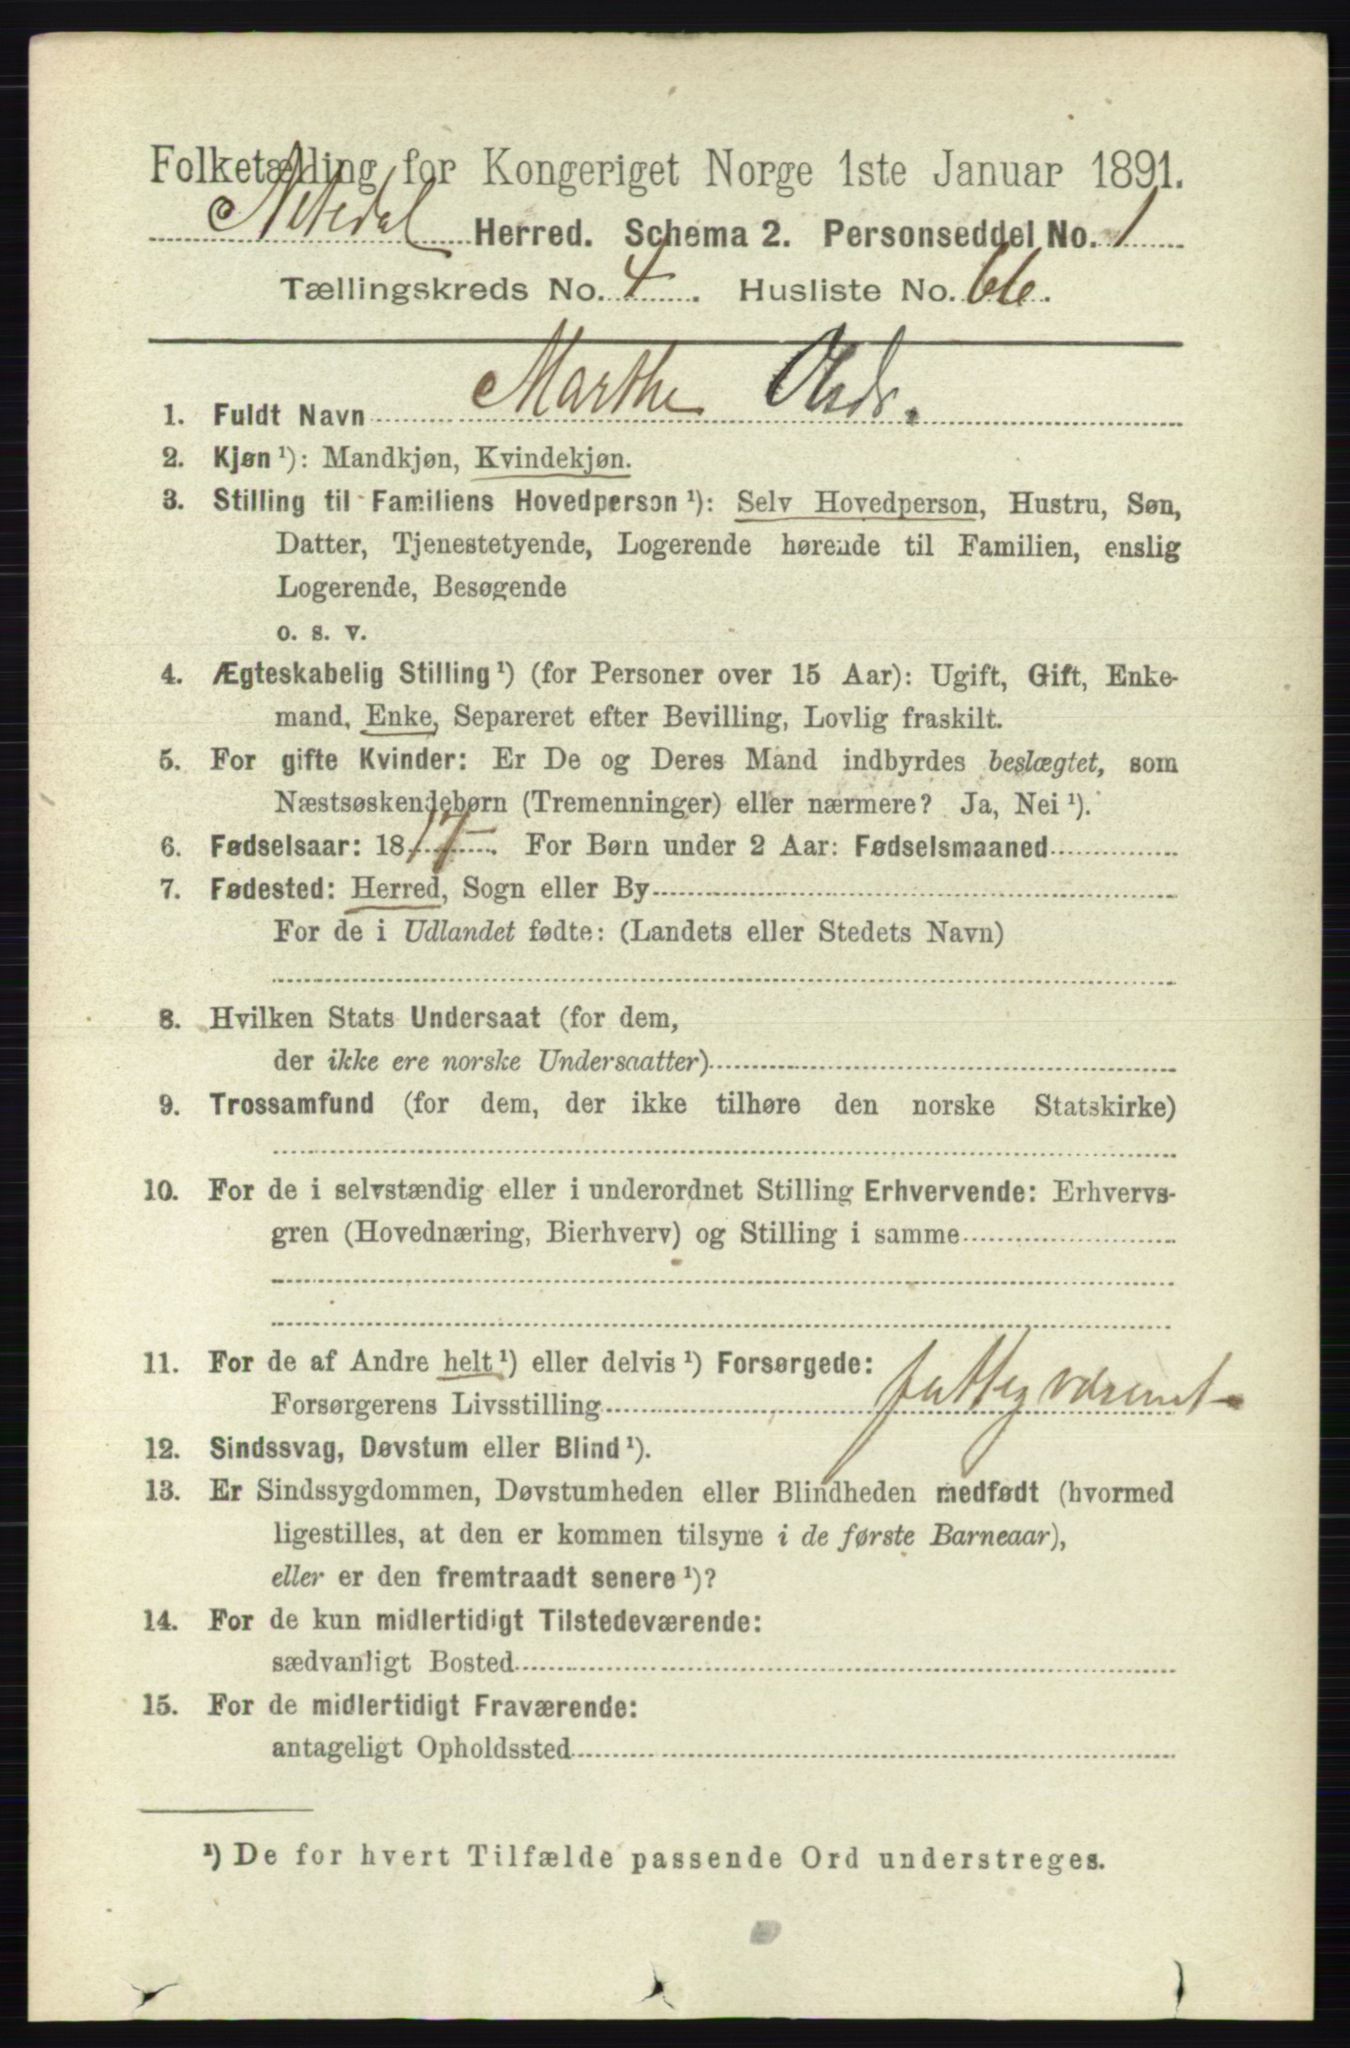 Folketælling for Kongeriget Norge 1ste Januar 1891.
Nitedal Herred. Schema 2. Personseddel No. 1
Tællingskreds No. 4. Husliste No. 66.
1. Fuldt Navn Marthe Olsdr.
2. Kjøn ¹): Mandkjøn, Kvindekjøn.
3. Stilling til Familiens Hovedperson ¹): Selv Hovedperson, Hustru, Søn,
Datter, Tjenestetyende, Logerende hørende til Familien, enslig
Logerende, Besøgende
o. s. v.
4. Ægteskabelig Stilling ¹) (for Personer over 15 Aar): Ugift, Gift, Enke-
mand, Enke, Separeret efter Bevilling, Lovlig fraskilt.
5. For gifte Kvinder: Er De og Deres Mand indbyrdes beslægtet, som
Næstsøskendebørn (Tremenninger) eller nærmere? Ja, Nei ¹).
6. Fødselsaar: 1817. For Børn under 2 Aar: Fødselsmaaned
7. Fødested: Herred, Sogn eller By
For de i Udlandet fødte: (Landets eller Stedets Navn)
8. Hvilken Stats Undersaat (for dem,
der ikke ere norske Undersaatter)
9. Trossamfund (for dem, der ikke tilhøre den norske Statskirke)
10. For de i selvstændig eller i underordnet Stilling Erhvervende: Erhvervs-
gren (Hovednæring, Bierhverv) og Stilling i samme
11. For de af Andre helt ¹) eller delvis ¹) Forsørgede:
Forsørgerens Livsstilling fattigvæsenet
12. Sindssvag, Døvstum eller Blind ¹).
13. Er Sindssygdommen, Døvstumheden eller Blindheden medfødt (hvormed
ligestilles, at den er kommen tilsyne i de første Barneaar),
eller er den fremtraadt senere ¹)?
14. For de kun midlertidigt Tilstedeværende:
sædvanligt Bosted
15. For de midlertidigt Fraværende:
antageligt Opholdssted
¹) De for hvert Tilfælde passende Ord understreges.